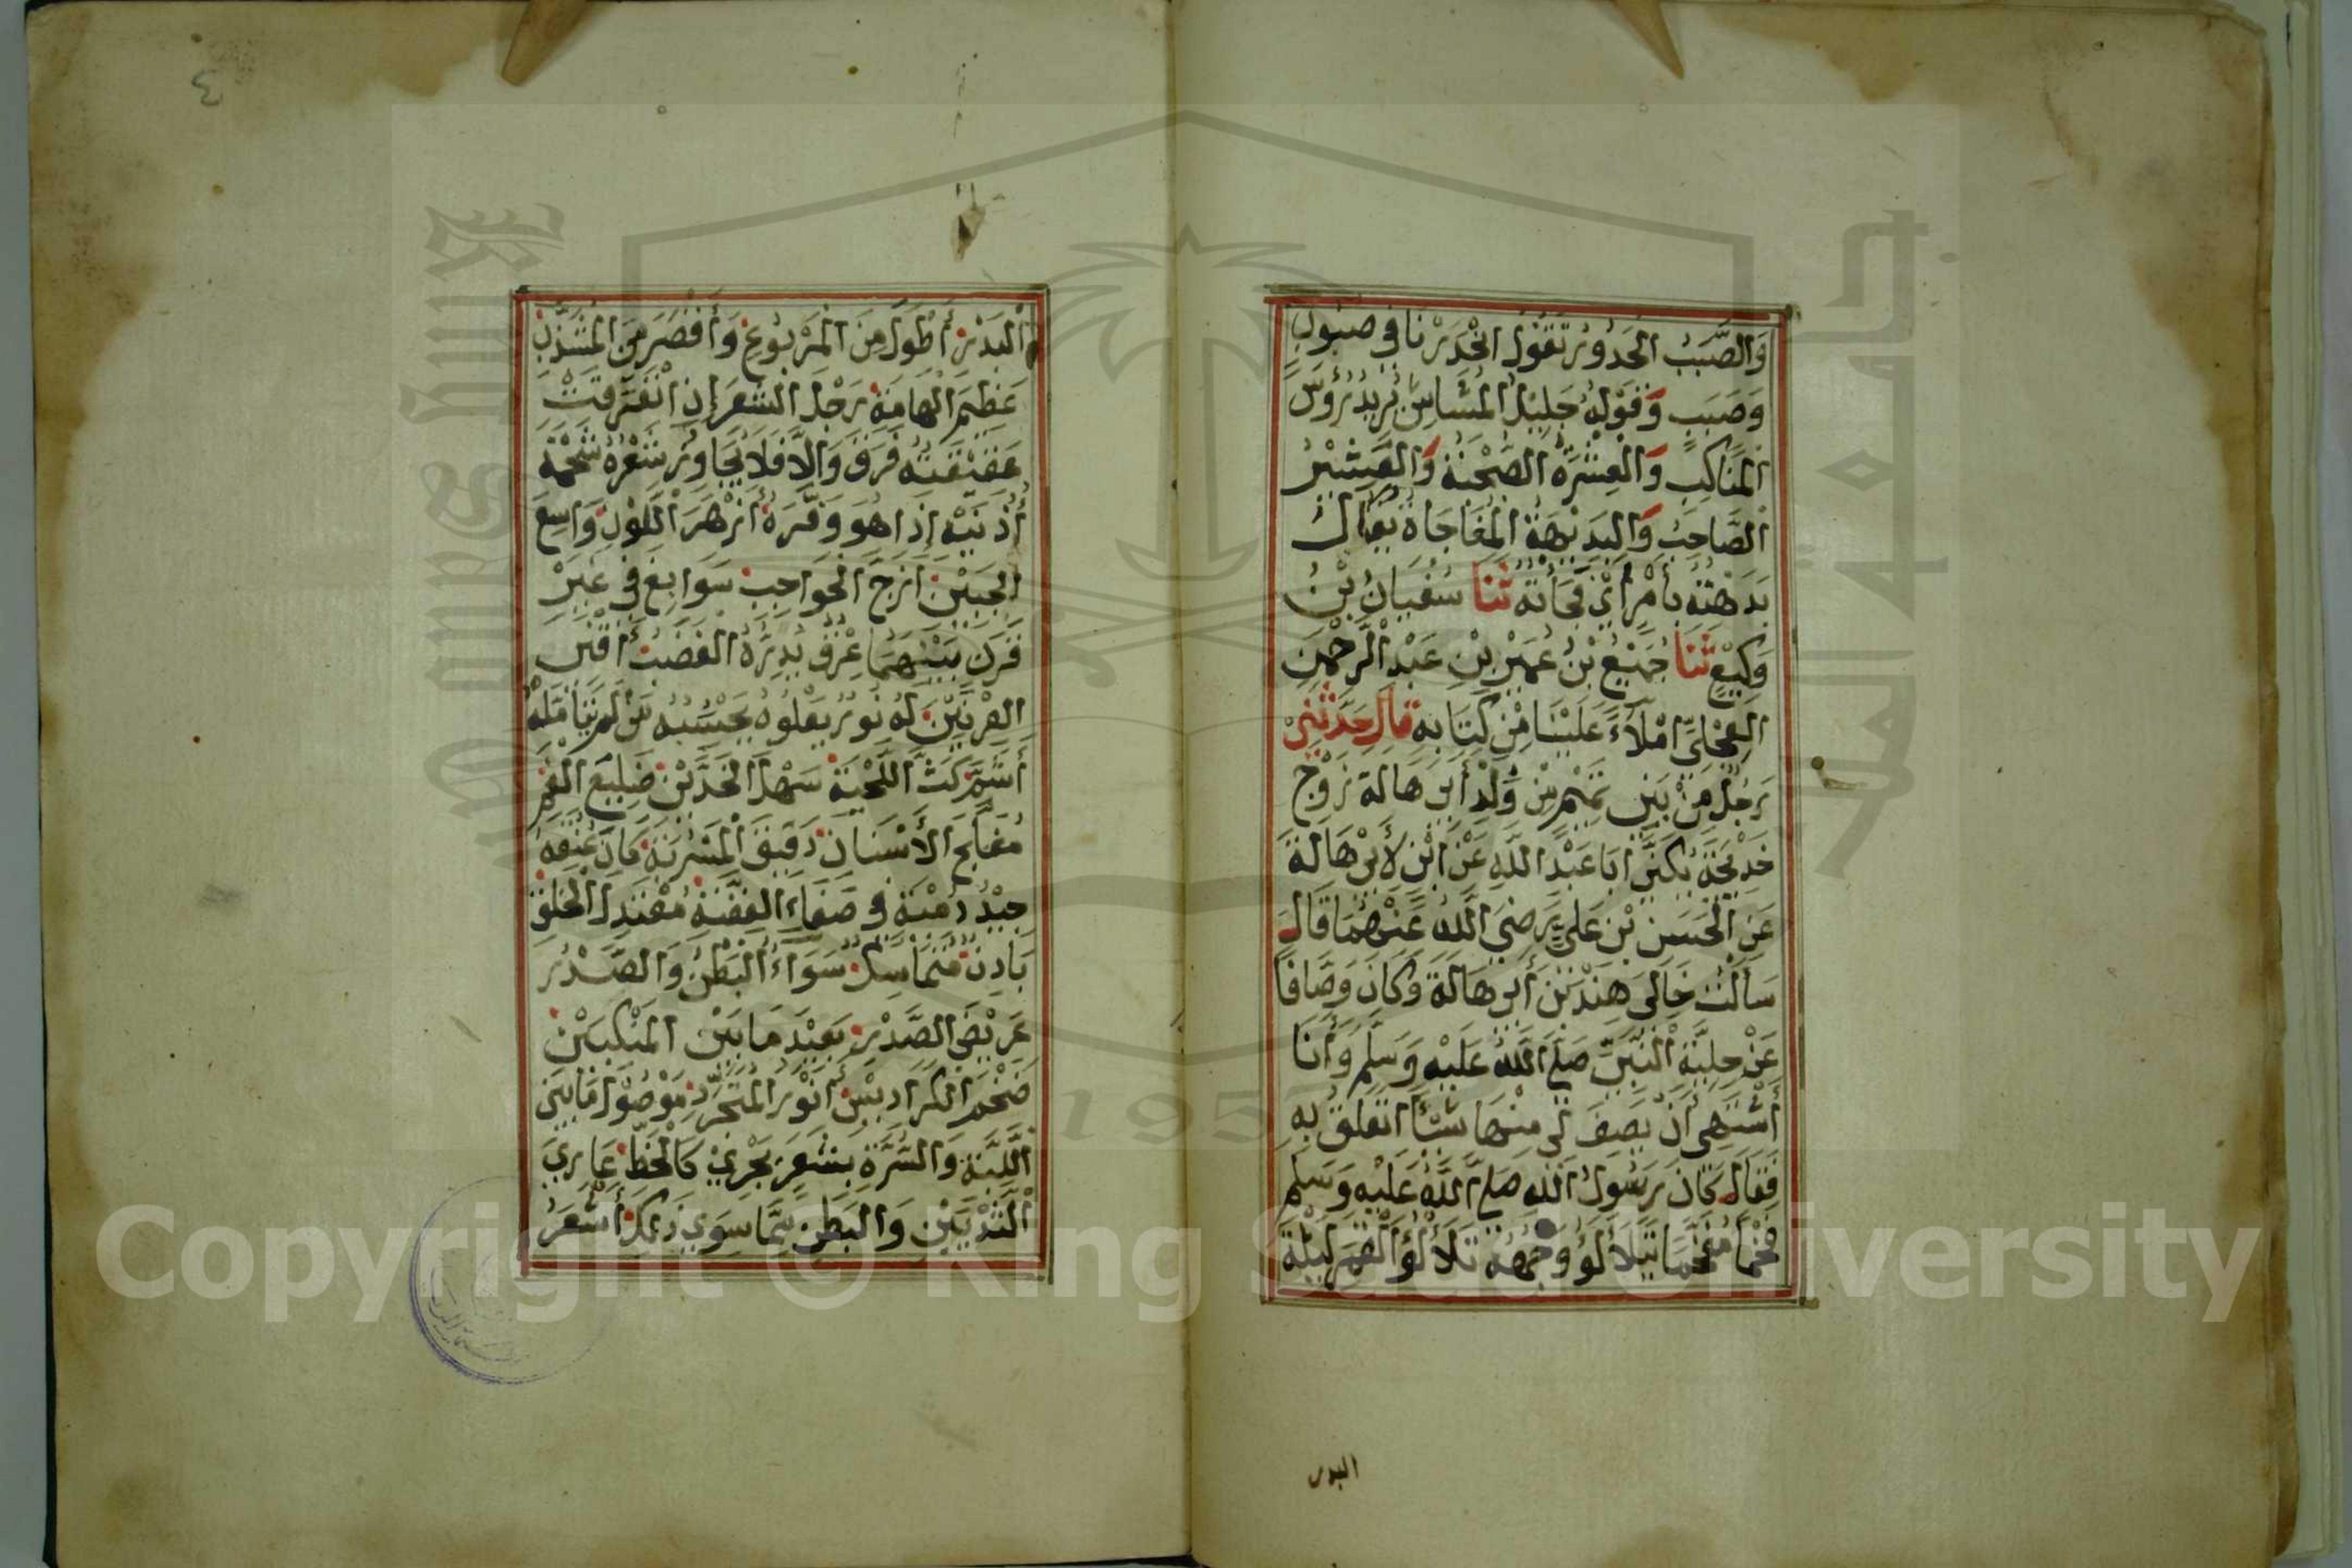 وَالصَّبَبُ الْحَدُورُ تَقُولُ انْحَدَرْنَا فِي صَبُوبٍ
وَصَبَبٍ وَقَوْلُهُ جَلِيلُ الْمُشَاشِ يُرِيدُ رُؤُسَ
الْمَنَاكِبِ وَالْعِشْرَةُ الصُّحْبَةُ وَالْعَشِيْرُ
الصَّاحِبُ وَالْبَدِيْهَةُ الْمُفَاجَاةُ يُقَالُ
بَدَهْتُهُ بِأَمْرٍ أَيْ فَجَأْتُهُ ثَنَا سُفْيَانُ بْنُ
وَكِيْعٍ ثَنَا جُمَيْعُ بْنُ عُمَيْرِ بْنِ عَبْدِ الرَّحْمٰنِ
الْعِجْلِيُّ امْلَاءً عَلَيْنَا مِنْ كِتَابِهِ قَالَ حَدَّثَنِيْ
رَجُلٌ مِنْ بَنِي تَمِيْمٍ مِنْ وَلَدِ أَبِي هَالَةَ زَوْجِ
خَدِيْجَةَ يُكَنَّى ابَا عَبْدِ اللَّهِ عَنِ ابْنٍ لِأَبِي هَالَةَ
عَنِ الْحَسَنِ بْنِ عَلِيٍّ رَضِيَ اللَّهُ عَنْهُمَا قَالَ
سَأَلْتُ خَالِي هِنْدَ بْنَ أَبِي هَالَةَ وَكَانَ وَصَّافًا
عَنْ حِلْيَةِ النَّبِيِّ صَلَّى اللَّهُ عَلَيْهِ وَسَلَّمَ وَأَنَا
أَشْتَهِي أَنْ يَصِفَ لِي مِنْهَا شَيْئًا اتَعَلَّقُ بِهِ
فَقَالَ كَانَ رَسُولُ اللَّهِ صَلَّى اللَّهُ عَلَيْهِ وَسَلَّمَ
فَخْمًا مُفَخَّمًا يَتَلَأْلَؤُ وَجْهُهُ تَلَأْلُؤَ الْقَمَرِ لَيْلَةَ
البدر
٤
الْبَدْرِ أَطْوَلَ مِنَ الْمَرْبُوعِ وَأَقْصَرَ مِنَ الْمُشَذَّبِ
عَظِيمَ الْهَامَةِ رَجِلَ الشَّعَرِ إِنِ انْفَرَقَتْ
عَقِيقَتُهُ فَرَقَ وَالَّا فَلَا يُجَاوِزُ شَعْرُهُ شَحْمَةَ
أُذُنَيْهِ إِذَا هُوَ وَفَّرَهُ أَزْهَرَ اللَّوْنِ وَاسِعَ
الْجَبِيْنِ أَزَجَّ الْحَوَاجِبِ سَوَابِغَ فِي غَيْرِ
قَرَنٍ بَيْنَهُمَا عِرْقٌ يُدِرُّهُ الْغَضَبُ أَقْنَى
الْعِرْنَيْنِ لَهُ نُورٌ يَعْلُوهُ يَحْسَبُهُ مَنْ لَمْ يَتَأَمَّلْهُ
أَشَمَّ كَثَّ اللِّحْيَةِ سَهْلَ الْخَدَّيْنِ ضَلِيعَ الْفَمِ
مُفَلَّجَ الْأَسْنَانِ دَقِيقَ الْمَسْرُبَةِ كَانَ عُنُقَهُ
جِيْدُ دُمْيَةٍ فِي صَفَاءِ الْفِضَّةِ مُعْتَدِلَ الْخَلْقِ
بَادِنٌ مُتَمَاسِكٌ سَوَاءُ الْبَطْنِ وَالصَّدْرِ
عَرِيْضَ الصَّدْرِ بَعِيْدَ مَا بَيْنَ الْمَنْكِبَيْنِ
ضَخْمَ الْكَرَادِيْسِ أَنْوَرُ الْمُتَجَرَّدِ مَوْصُوْلَ مَا بَيْنَ
اللَّبَّةِ وَالسُّرَّةِ بِشَعَرٍ يَجْرِيْ كَالْخَطِّ عَارِيَ
الثَّدْيَيْنِ وَالْبَطْنِ مِمَّا سِوَي ذَلِكَ أَشْعَرَ
Copyright © King Saud University
1957